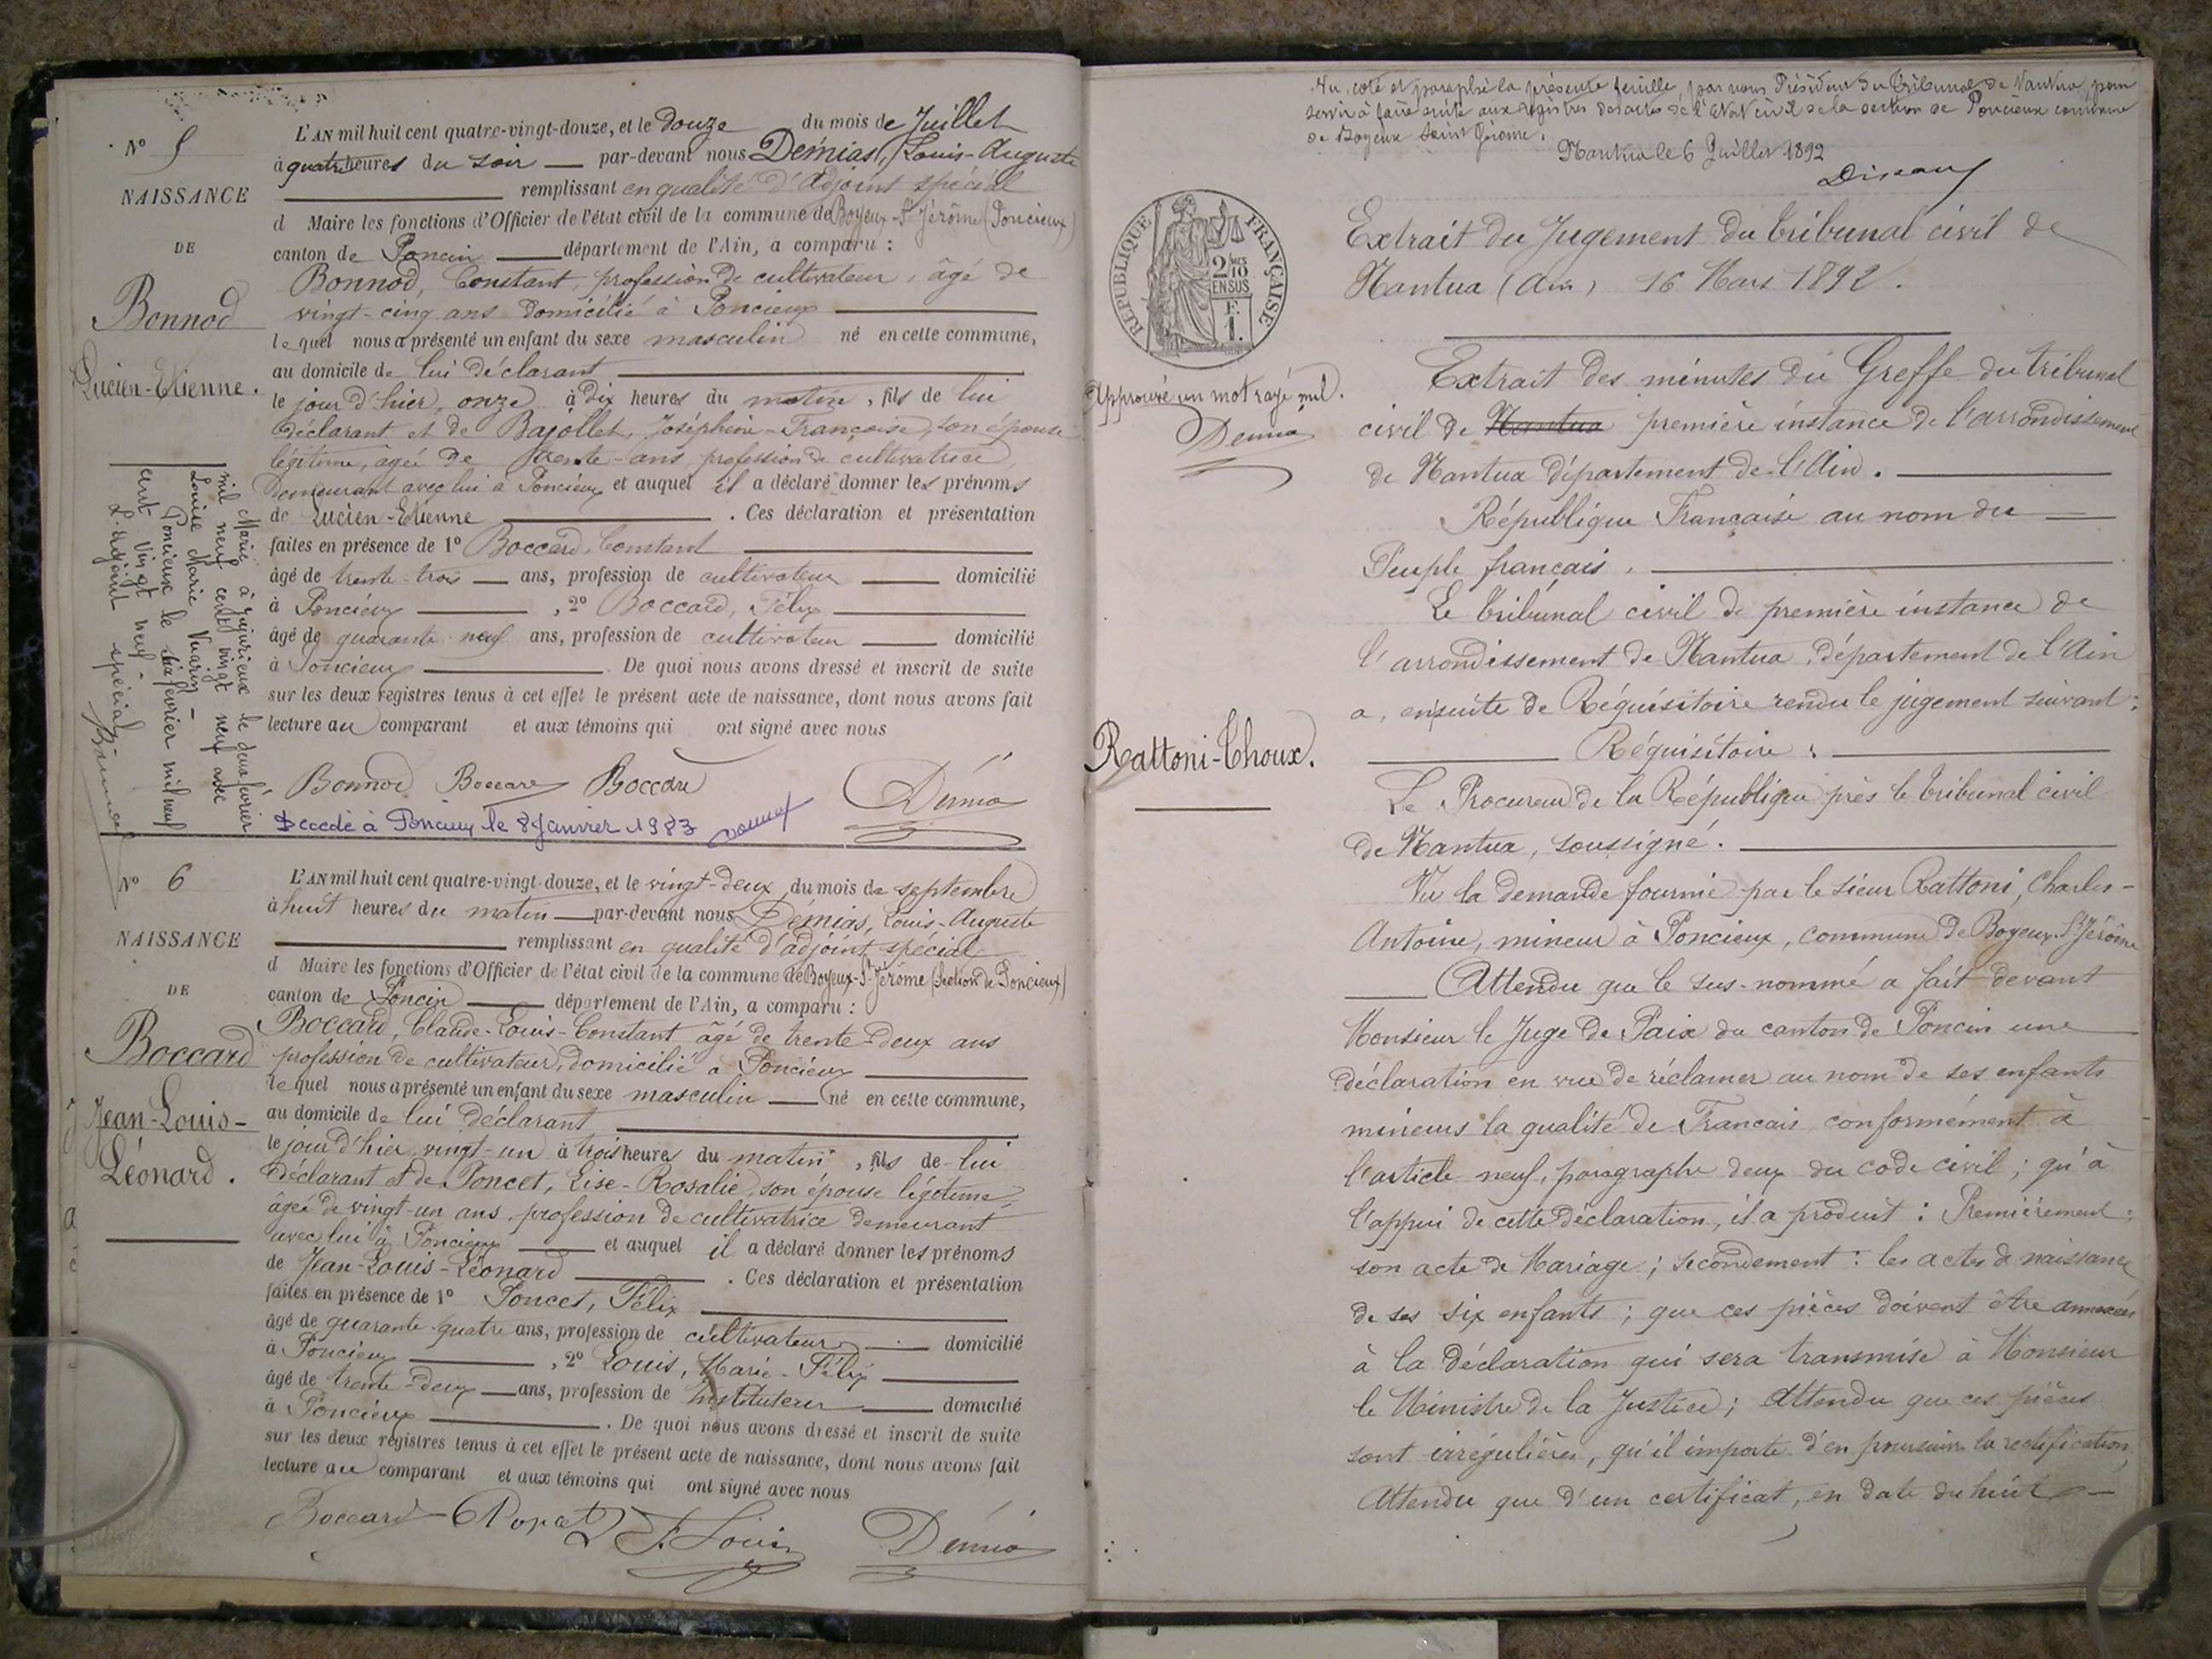 N° 5
NAISSANCE
DE
Bonnod
Lucien-Etienne.
L'AN mil huit cent quatre-vingt-douze, et le douze du mois de Juillet
à quatre heures du soir par-devant nous Démias, Louis-Auguste
remplissant en qualité d'adjoint spécial
d Maire les fonctions d'Officier de l'état civil de la commune de Boyeux-St Jérôme (Poncieux)
canton de Poncin département de l'Ain, a comparu :
Bonnod, Constant, profession de cultivateur, âgé de
vingt-cinq ans domicilié à Poncieux
lequel nous a présenté un enfant du sexe masculin né en cette commune,
au domicile de lui déclarant
le jour d'hier, onze à dix heures du matin, fils de lui
déclarant et de Bajollet, Joséphine-Françoise, son épouse
légitime, agée de trente-ans, profession de cultivatrice,
demeurant avec lui à Poncieux et auquel il a déclaré donner les prénoms
de Lucien-Etienne . Ces déclaration et présentation
faites en présence de 1° Boccard, Constant
âgé de trente-trois ans, profession de cultivateur domicilié
à Poncieux , 2° Boccard, Félix
âgé de quarante-neuf ans, profession de cultivateur domicilié
à Poncieux . De quoi nous avons dressé et inscrit de suite
sur les deux registres tenus à cet effet le présent acte de naissance, dont nous avons fait
lecture au comparant et aux témoins qui ont signé avec nous
Bonnod Boccard Boccard Démia
Décédé à Poncieux le 8 Janvier 1983
Marié à Jujurieux le deux février
mil neuf cent vingt neuf avec
Louise Marie Vuarin -
Poncieux le six février mil neuf
cent vingt neuf.
L'adjoint spécial
N° 6
NAISSANCE
DE
Boccard
Jean-Louis-
Léonard.
L'AN mil huit cent quatre-vingt-douze, et le vingt-deux du mois de septembre
à huit heures du matin par-devant nous Démias, Louis-Auguste
remplissant en qualité d'adjoint spécial
d Maire les fonctions d'Officier de l'état civil de la commune de Boyeux-St Jérôme (Section de Poncieux)
canton de Poncin département de l'Ain, a comparu :
Boccard, Claude-Louis-Constant âgé de trente-deux ans
profession de cultivateur, domicilié à Poncieux
lequel nous a présenté un enfant du sexe masculin né en cette commune,
au domicile de lui déclarant
le jour d'hier, vingt-un à trois heures du matin, fils de lui
déclarant et de Poncet, Lise-Rosalie, son épouse légitime,
âgée de vingt-un ans, profession de cultivatrice demeurant
avec lui à Poncieux et auquel il a déclaré donner les prénoms
de Jean-Louis-Léonard . Ces déclaration et présentation
faites en présence de 1° Poncet, Félix
âgé de quarante-quatre ans, profession de cultivateur domicilié
à Poncieux , 2° Louis, Marie-Félix
âgé de trente-deux ans, profession de Instituteur domicilié
à Poncieux . De quoi nous avons dressé et inscrit de suite
sur les deux registres tenus à cet effet le présent acte de naissance, dont nous avons fait
lecture au comparant et aux témoins qui ont signé avec nous
Boccard F. Louis Démia
Vu, coté et paraphé la présente feuille, par nous Président du Tribunal de Nantua, pour
servir à faire suite aux registres des actes de l'état civil de la section de Poncieux commune
de Boyeux Saint Jérôme.
Nantua le 6 Juillet 1892
RÉPUBLIQUE FRANÇAISE
2/10 EN SUS
F. 1.
Approuvé un mot rayé nul.
Démia
Rattoni-Choux.
Extrait du Jugement du tribunal civil de
Nantua (Ain) 16 Mars 1892.
Extrait des minutes du Greffe du tribunal
civil de Nantua première instance de l'arrondissement
de Nantua département de l'Ain.
République Française au nom du
Peuple français.
Le tribunal civil de première instance de
l'arrondissement de Nantua, département de l'Ain
a, ensuite de Réquisitoire rendu le jugement suivant :
Réquisitoire :
Le Procureur de la République près le tribunal civil
de Nantua, soussigné.
Vu la demande fournie par le sieur Rattoni, Charles-
Antoine, mineur à Poncieux, commune de Boyeux-St Jérôme
Attendu que le sus-nommé a fait devant
Monsieur le Juge de Paix du canton de Poncin une
déclaration en vue de réclamer au nom de ses enfants
mineurs la qualité de Français conformément à
l'article neuf, paragraphe deux du code civil ; qu'à
l'appui de cette déclaration, il a produit : Premièrement :
son acte de Mariage ; secondement : les actes de naissance
de ses six enfants ; que ces pièces doivent être annexées
à la déclaration qui sera transmise à Monsieur
le Ministre de la Justice ; Attendu que ces pièces
sont irrégulières, qu'il importe d'en poursuivre la rectification,
Attendu que d'un certificat, en date du huit